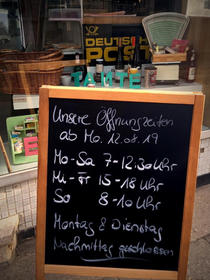 DEUTSCHE
POST
TANTE
Unsere Öffnungszeiten
ab Mo. 12.08.19
Mo-Sa 7-12:30 Uhr
Mi-Fr 15-18 Uhr
So 8-10 Uhr
Montag & Dienstag
Nachmittag geschlossen